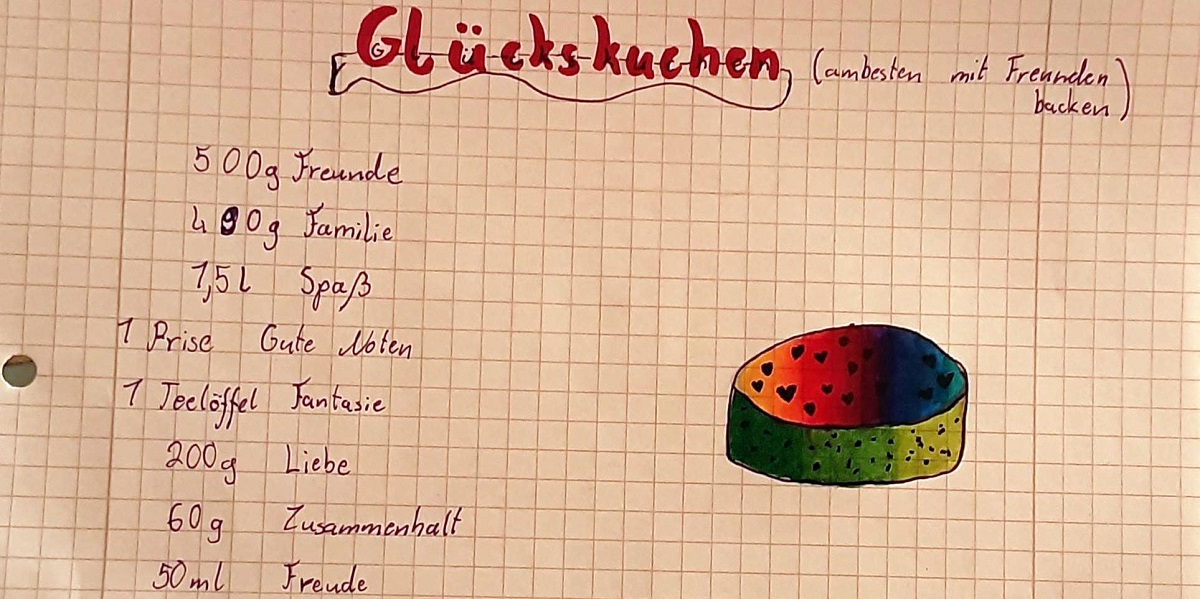 Glückskuchen (ambesten mit Freunden
backen)
500g Freunde
490g Familie
1,5l Spaß
1 Prise Gute Noten
1 Teelöffel Fantasie
200g Liebe
60g Zusammenhalt
50ml Freude